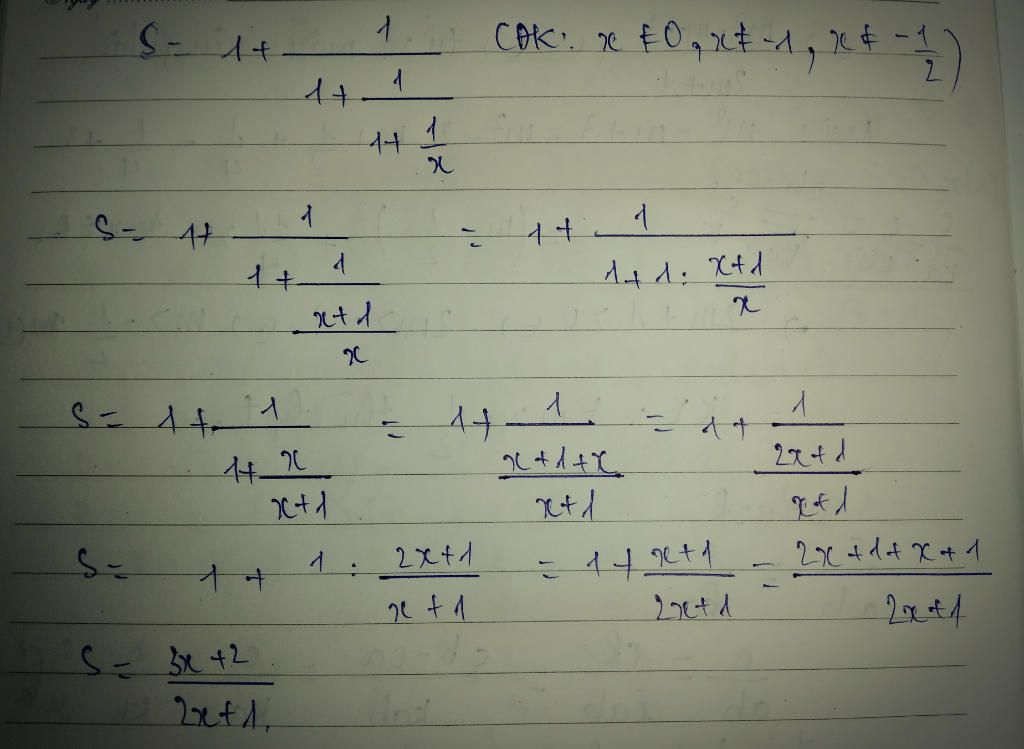 S = 1 + \frac{1}{1 + \frac{1}{1 + \frac{1}{x}}} (ĐK: x ≠ 0, x ≠ -1, x ≠ -\frac{1}{2})
S = 1 + \frac{1}{1 + \frac{1}{\frac{x+1}{x}}} = 1 + \frac{1}{1 + 1 : \frac{x+1}{x}}
S = 1 + \frac{1}{1 + \frac{x}{x+1}} = 1 + \frac{1}{\frac{x+1+x}{x+1}} = 1 + \frac{1}{\frac{2x+1}{x+1}}
S = 1 + 1 : \frac{2x+1}{x+1} = 1 + \frac{x+1}{2x+1} = \frac{2x+1+x+1}{2x+1}
S = \frac{3x+2}{2x+1}.